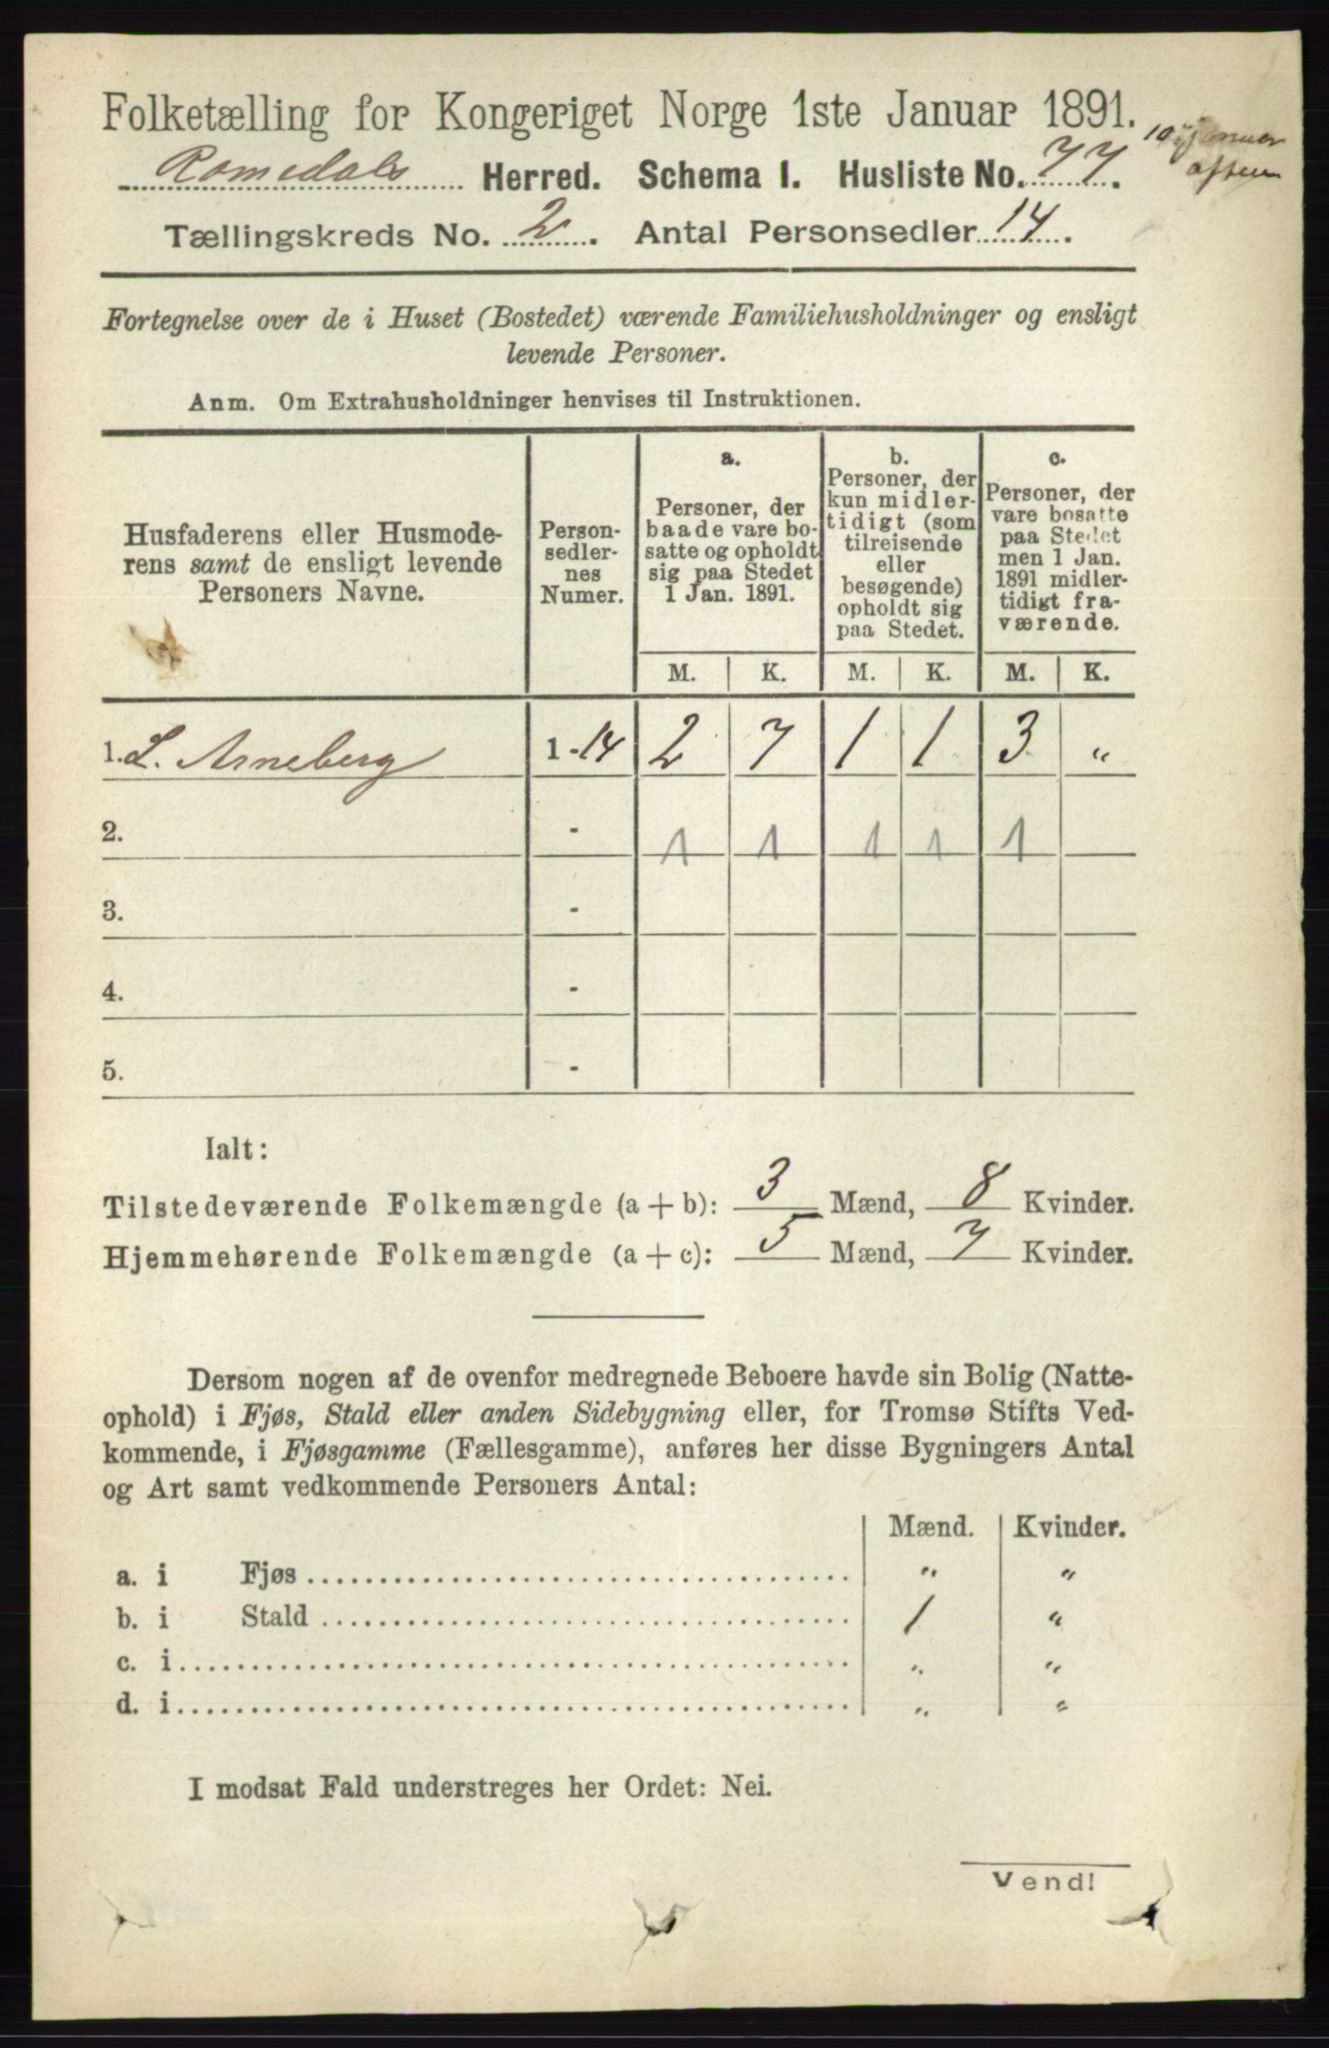 Folketælling for Kongeriget Norge 1ste Januar 1891.
10 Januar
aften
Romedals Herred. Schema 1. Husliste No. 77.
Tællingskreds No. 2. Antal Personsedler 14.
Fortegnelse over de i Huset (Bostedet) værende Familiehusholdninger og ensligt
levende Personer.
Anm. Om Extrahusholdninger henvises til Instruktionen.
Husfaderens eller Husmode-
rens samt de ensligt levende
Personers Navne.
Person-
sedler-
nes
Numer.
a.
Personer, der
baade vare bo-
satte og opholdt
sig paa Stedet
1 Jan. 1891.
b.
Personer, der
kun midler-
tidigt (som
tilreisende
eller
besøgende)
opholdt sig
paa Stedet.
c.
Personer, der
vare bosatte
paa Stedet
men 1 Jan.
1891 midler-
tidigt fra-
værende.
M. K. M. K. M. K.
1. L. Arneberg 1-14 2 7 1 1 3 "
2. - 1 1 1 1 1
3. -
4. -
5. -
Ialt:
Tilstedeværende Folkemængde (a + b): 3 Mænd, 8 Kvinder.
Hjemmehørende Folkemængde (a + c): 5 Mænd, 7 Kvinder.
Dersom nogen af de ovenfor medregnede Beboere havde sin Bolig (Natte-
ophold) i Fjøs, Stald eller anden Sidebygning eller, for Tromsø Stifts Ved-
kommende, i Fjøsgamme (Fællesgamme), anføres her disse Bygningers Antal
og Art samt vedkommende Personers Antal:
Mænd. Kvinder.
a. i Fjøs " "
b. i Stald 1 "
c. i " "
d. i " "
I modsat Fald understreges her Ordet: Nei.
Vend!